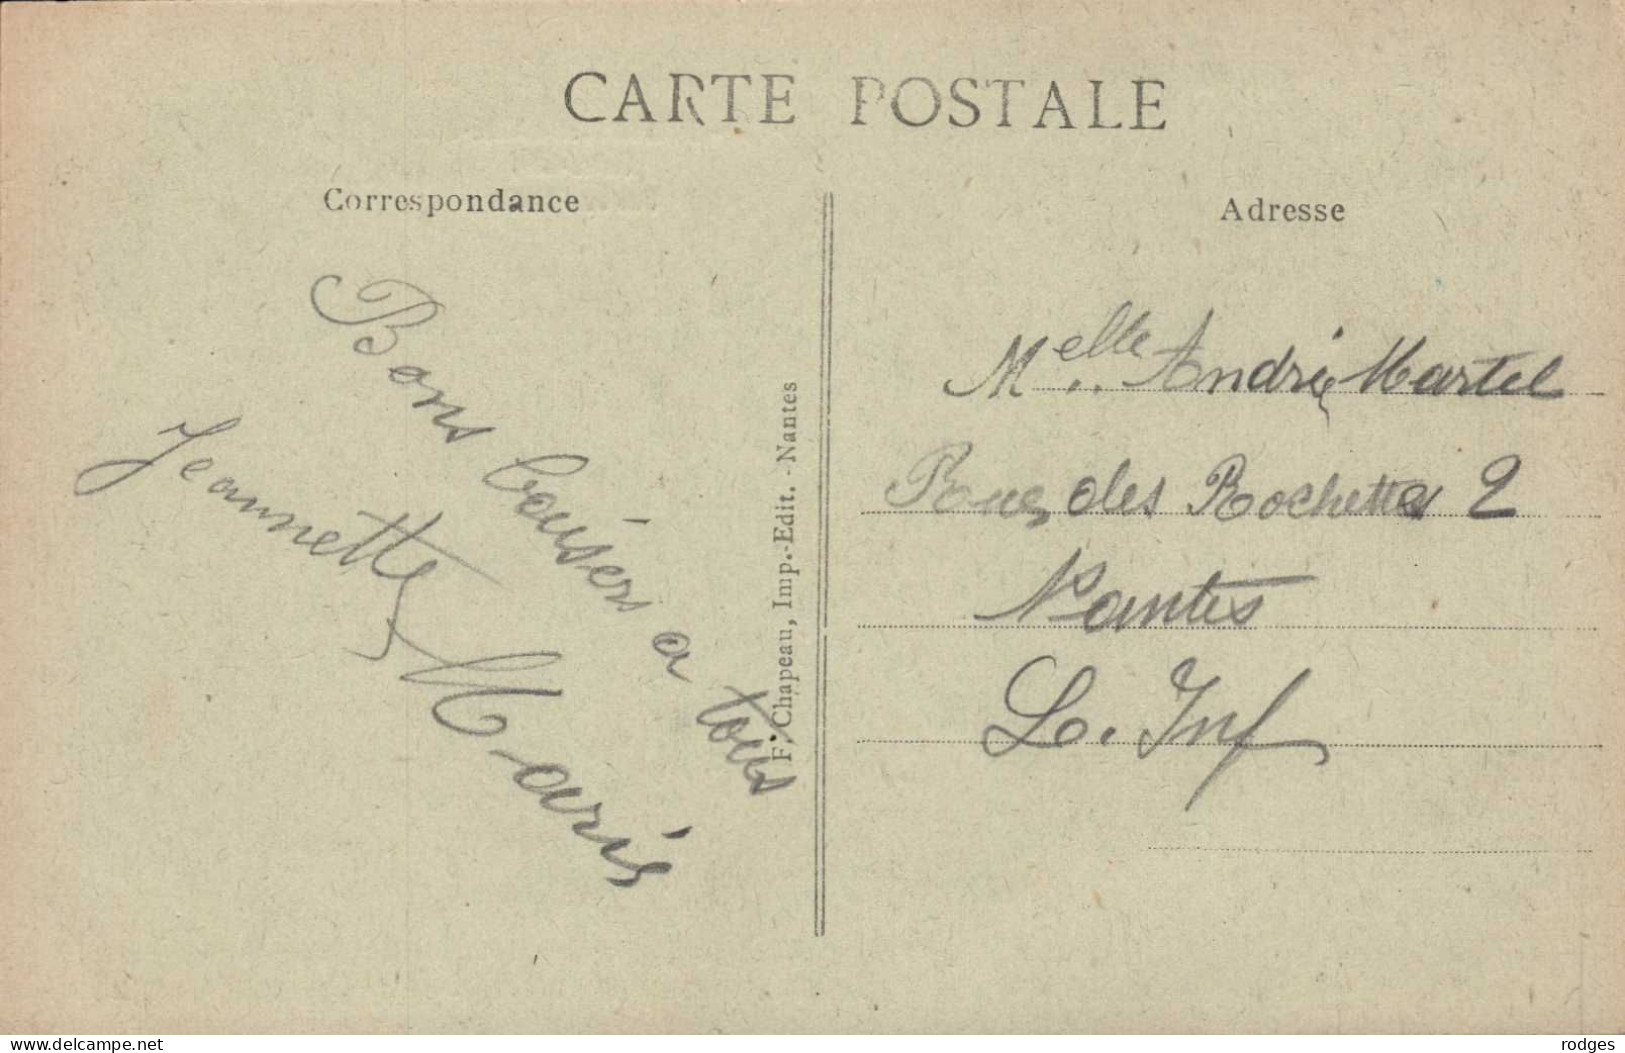 CARTE POSTALE
Correspondance
Bons baisers a tous
Jeannette Marie
F. Chapeau, Imp.-Edit. - Nantes
Adresse
Melle Andrée Martel
Rue des Rochettes 2
Nantes
L. Inf
www.delcampe.net
rodges